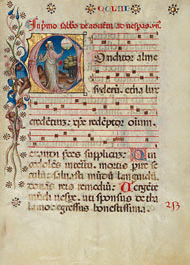 In pmo sabbo de adventu ad vesperas.
Conditor alme
siderum. etna lux
credentium. xpe redeptor omni
um
exaudi preces supplicum. Qui
condolens interitu. mortis pire se
culum salvasti mundu languidu.
donans reis remediu. Vergente
mundi vespere. uti sponsus de tha
lamo egressus honestissima.
253